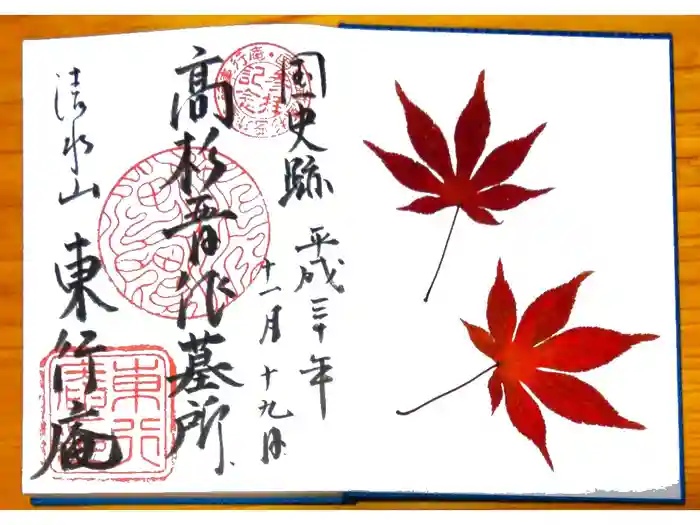 国史跡
平成三十年
十一月十九日
高杉晋作墓所
清水山
東行庵
参拝
記念
東行